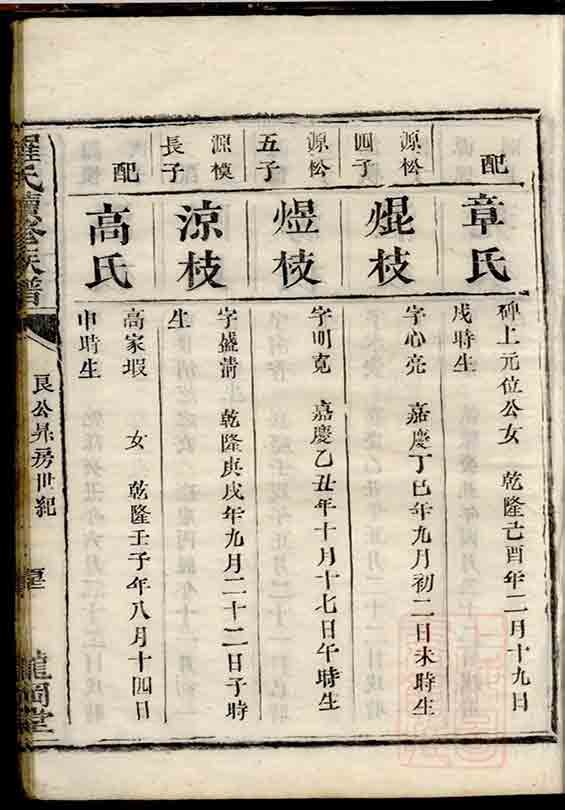 配
章氏
碑上元位公女 乾隆己酉年二月十九日
戌時生
源松
四子
焜枝
字心亮 嘉慶丁巳年九月初二日未時生
源松
五子
煜枝
字明克 嘉慶乙丑年十月十七日午時生
源模
長子
涼枝
字盛清 乾隆庚戌年九月二十二日子時
生
配
高氏
高家塅 女 乾隆壬子年八月十四日
申時生
羅氏續修族譜
良公昇房世紀
龍岡堂